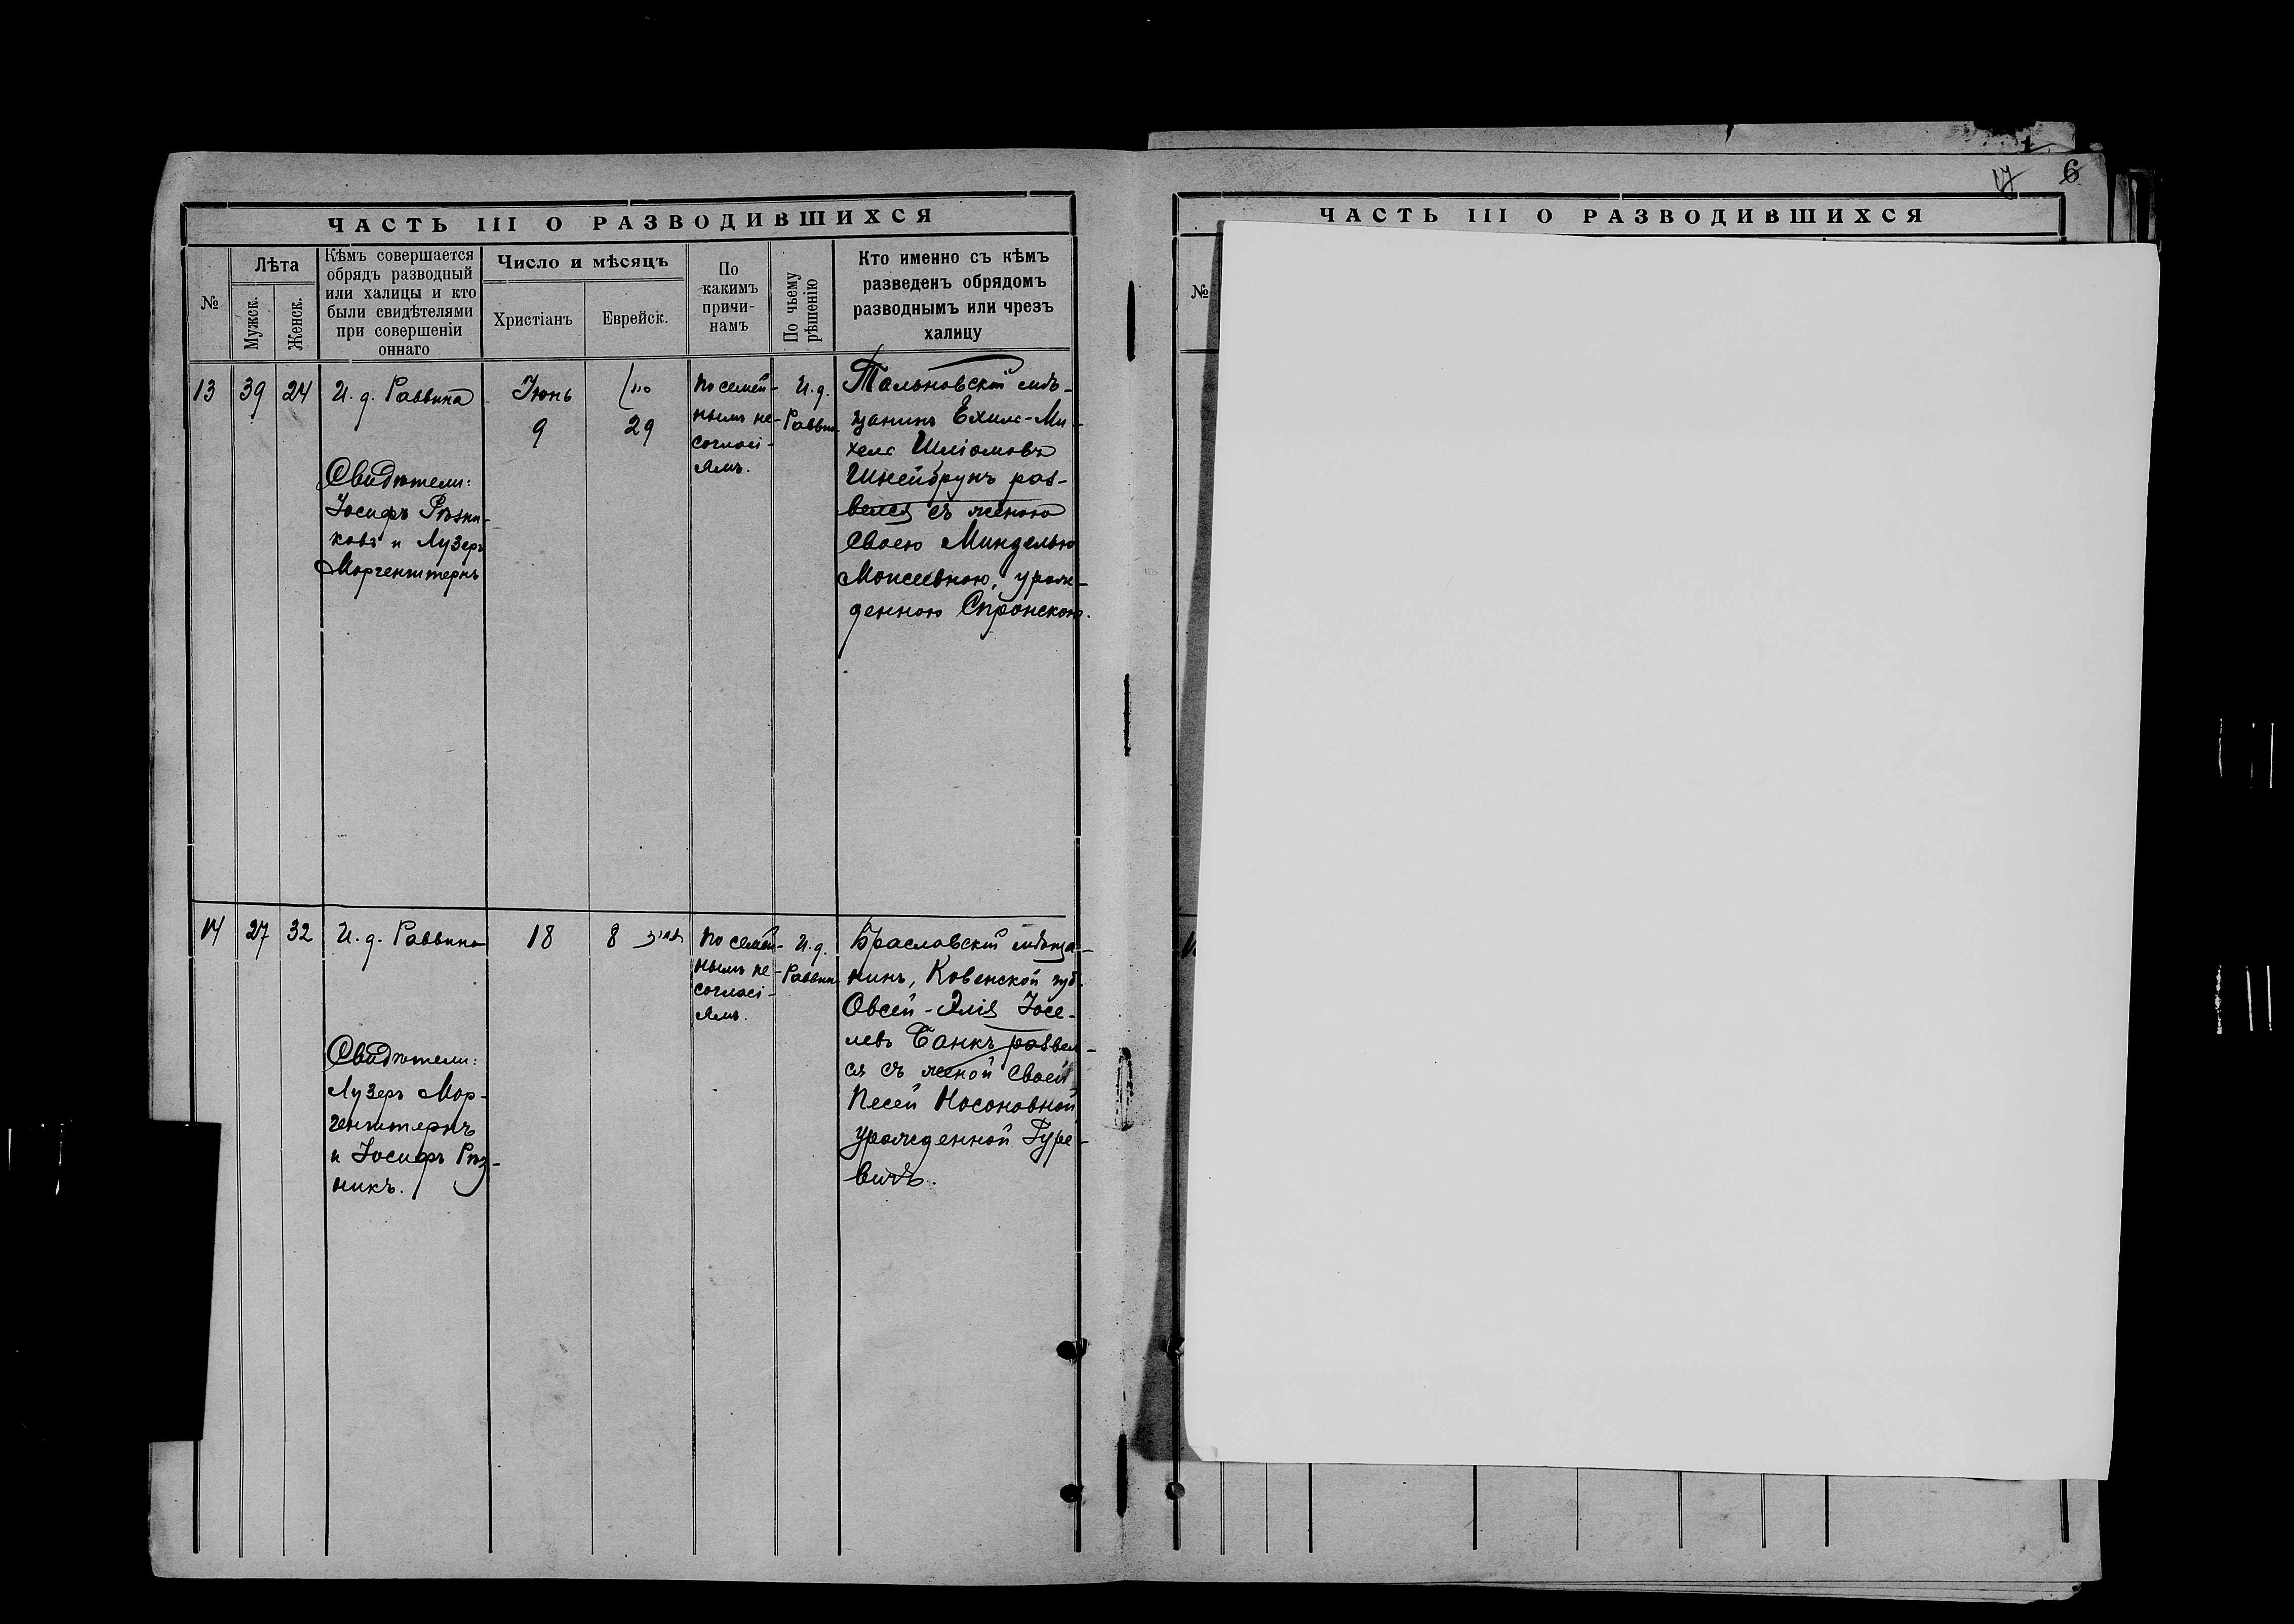 ЧАСТЬ III О РАЗВОДИВШИХСЯ
№
Лѣта
Мужск.
Женск.
Кѣмъ совершается
обрядъ разводный
или халицы и кто
были свидѣтелями
при совершеніи
оннаго
Число и мѣсяцъ
Христіанъ
Еврейск.
По
какимъ
причи-
намъ
По чьему
рѣшенію
Кто именно съ кѣмъ
разведенъ обрядомъ
разводнымъ или чрезъ
халицу
13
39
24
И. д. Раввина
Свидѣтели:
Іосифъ Рѣзни-
ковъ и Лузеръ
Моргенштернъ
Іюнь
9
סיון
29
По семей-
нымъ не-
согласі-
ямъ.
И. д.
Раввин
Тальновской мѣ-
щанинъ Ехилъ-Ми-
хелъ Шліомовъ
Шнейбрунъ раз-
велся съ женою
своею Минделью
Моисеевною, урож-
денною Спронскою.
14
27
32
И. д. Раввина
Свидѣтели:
Лузеръ Мор-
генштернъ
и Іосифъ Рѣз-
никъ.
18
8 תמוז
По семей-
нымъ не-
согласі-
ямъ.
И. д.
Раввин
Браславскій мѣща-
нинъ, Ковенской губ.
Овсей-Элія Іосе-
левъ Банкъ развел-
ся съ женой своей
Песей Носоновной
урожденной Гуре-
вичъ.
17 6
ЧАСТЬ III О РАЗВОДИВШИХСЯ
№